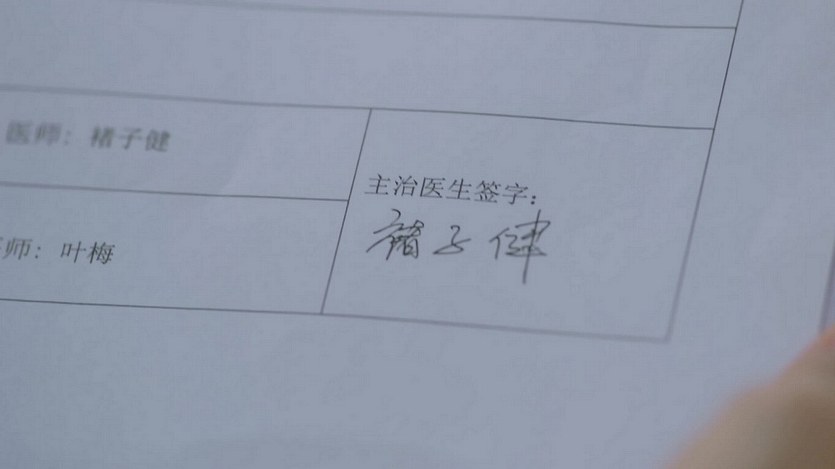 医师：褚子健
主治医生签字：
褚子健
师：叶梅